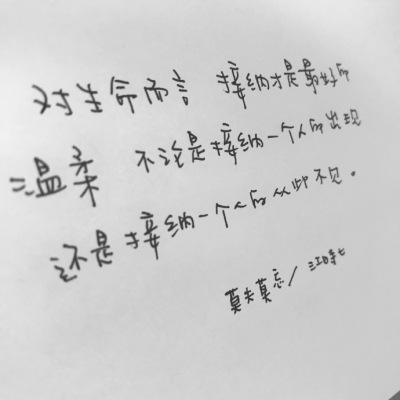 对生命而言 接纳才是最好的
温柔 不论是接纳一个人的出现
还是接纳一个人的从此不见。
莫失莫忘/